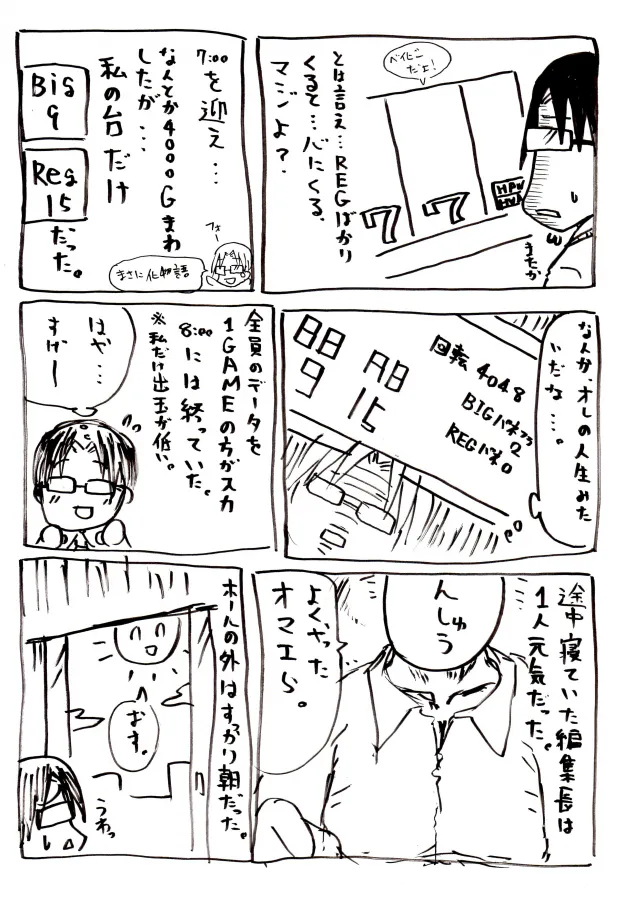 ベイビー
だよ!
とは言え…REGばかり
くると…バにくる。
マジよ?
またか
7:00を迎え…
なんとか4000Gまわ
したが…
私の台だけ
Big
9
Reg
15
だった。
まさに化物語
なんか、オレの人生みた
いだな…。
回転4048
BIGパネフラ
2
REGパネ0
BB
9
RB
15
全員のデータを
1GAMEの方がスカ
8:00には終っていた。
※私だけ出玉が低い。
はや…
すげー
途中寝ていた編集長は
1人元気だった。
へんしゅう
よくやった
オマエら。
ホールの外はすっかり朝だった。
おす。
うわっ